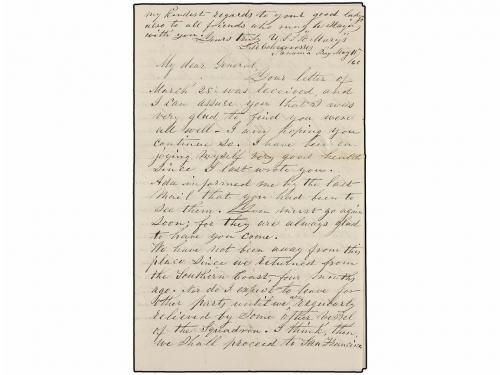 my kindest regards to your good lady
also to all friends who may be staying
with you. Yours truly U.S.S. "St Mary's"
Panama Bay May 11th
/60
My dear General,
Your letter of
March 28th was received, and
I can assure you that I was
very glad to find you were
all well - I am hoping you
continue so. I have been en-
joying myself very good health
since I last wrote you.
Ada informed me by the last
mail that you had been to
see them. You must go again
soon; for they are always glad
to have you come.
We have not been away from this
place since we returned from
the Southern Coast, four months
ago. Nor do I expect to leave for
other parts, until we are regularly
relieved by some other vessel
of the Squadron. I think, then,
we shall proceed to San Francisco